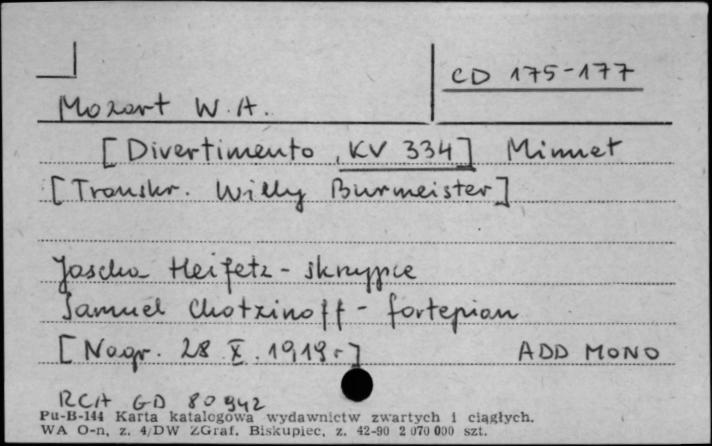 CD 175-177
Mozart W. A.
[Divertimento, KV 334] Minuet
[Transkr. Willy Burmeister]
Jascha Heifetz - skrzypce
Samuel Chotzinoff - fortepian
[Nagr. 28 X. 1919 r]
ADD MONO
RCA GD 80942
Pu-B-144 Karta katalogowa wydawnictw zwartych i ciągłych.
WA O-n, z. 4/DW ZGraf. Biskupiec, z. 42-90 2 070 000 szt.